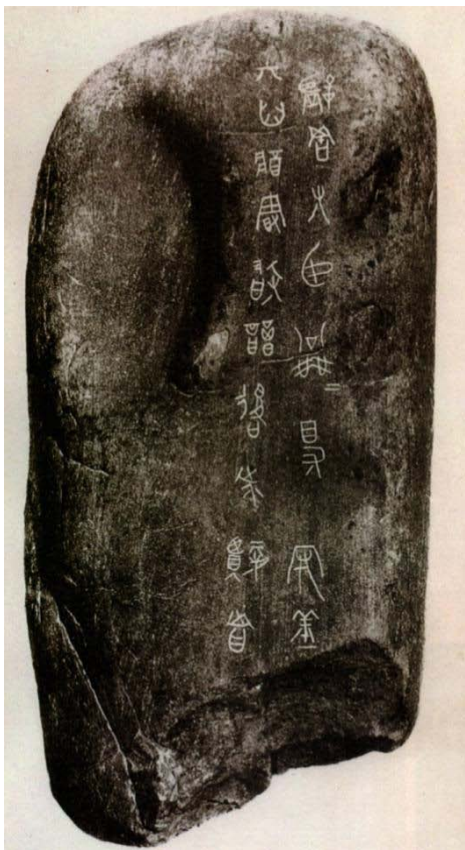 監罟尤臣公乘得守丘
其臼將曼敢謁後尗賢者